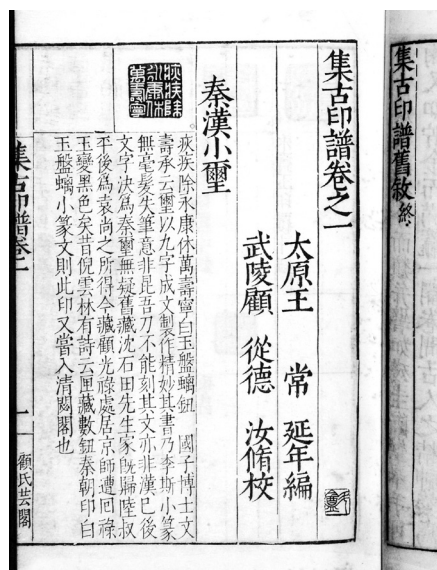 集古印譜舊敘終
集古印譜卷之一
太原王 常 延年編
武陵顧 從德 汝脩校
秦漢小璽
疢疾除永康休萬壽寧
疢疾除永康休萬壽寧白玉盤螭鈕 國子博士文
壽承云璽以九字成文製作精妙其書乃李斯小篆
無毫髮失筆意非昆吾刀不能刻其文亦非漢已後
文字決為秦璽無疑舊藏沈石田先生家旣歸陸叔
平後為袁尚之所得今藏顧光祿處居京師遭回祿
玉變黑色矣昔倪雲林有詩云匣藏數鈕秦朝印白
玉盤螭小篆文則此印又嘗入清閟閣也
集古印譜卷一
一
顧氏芸閣